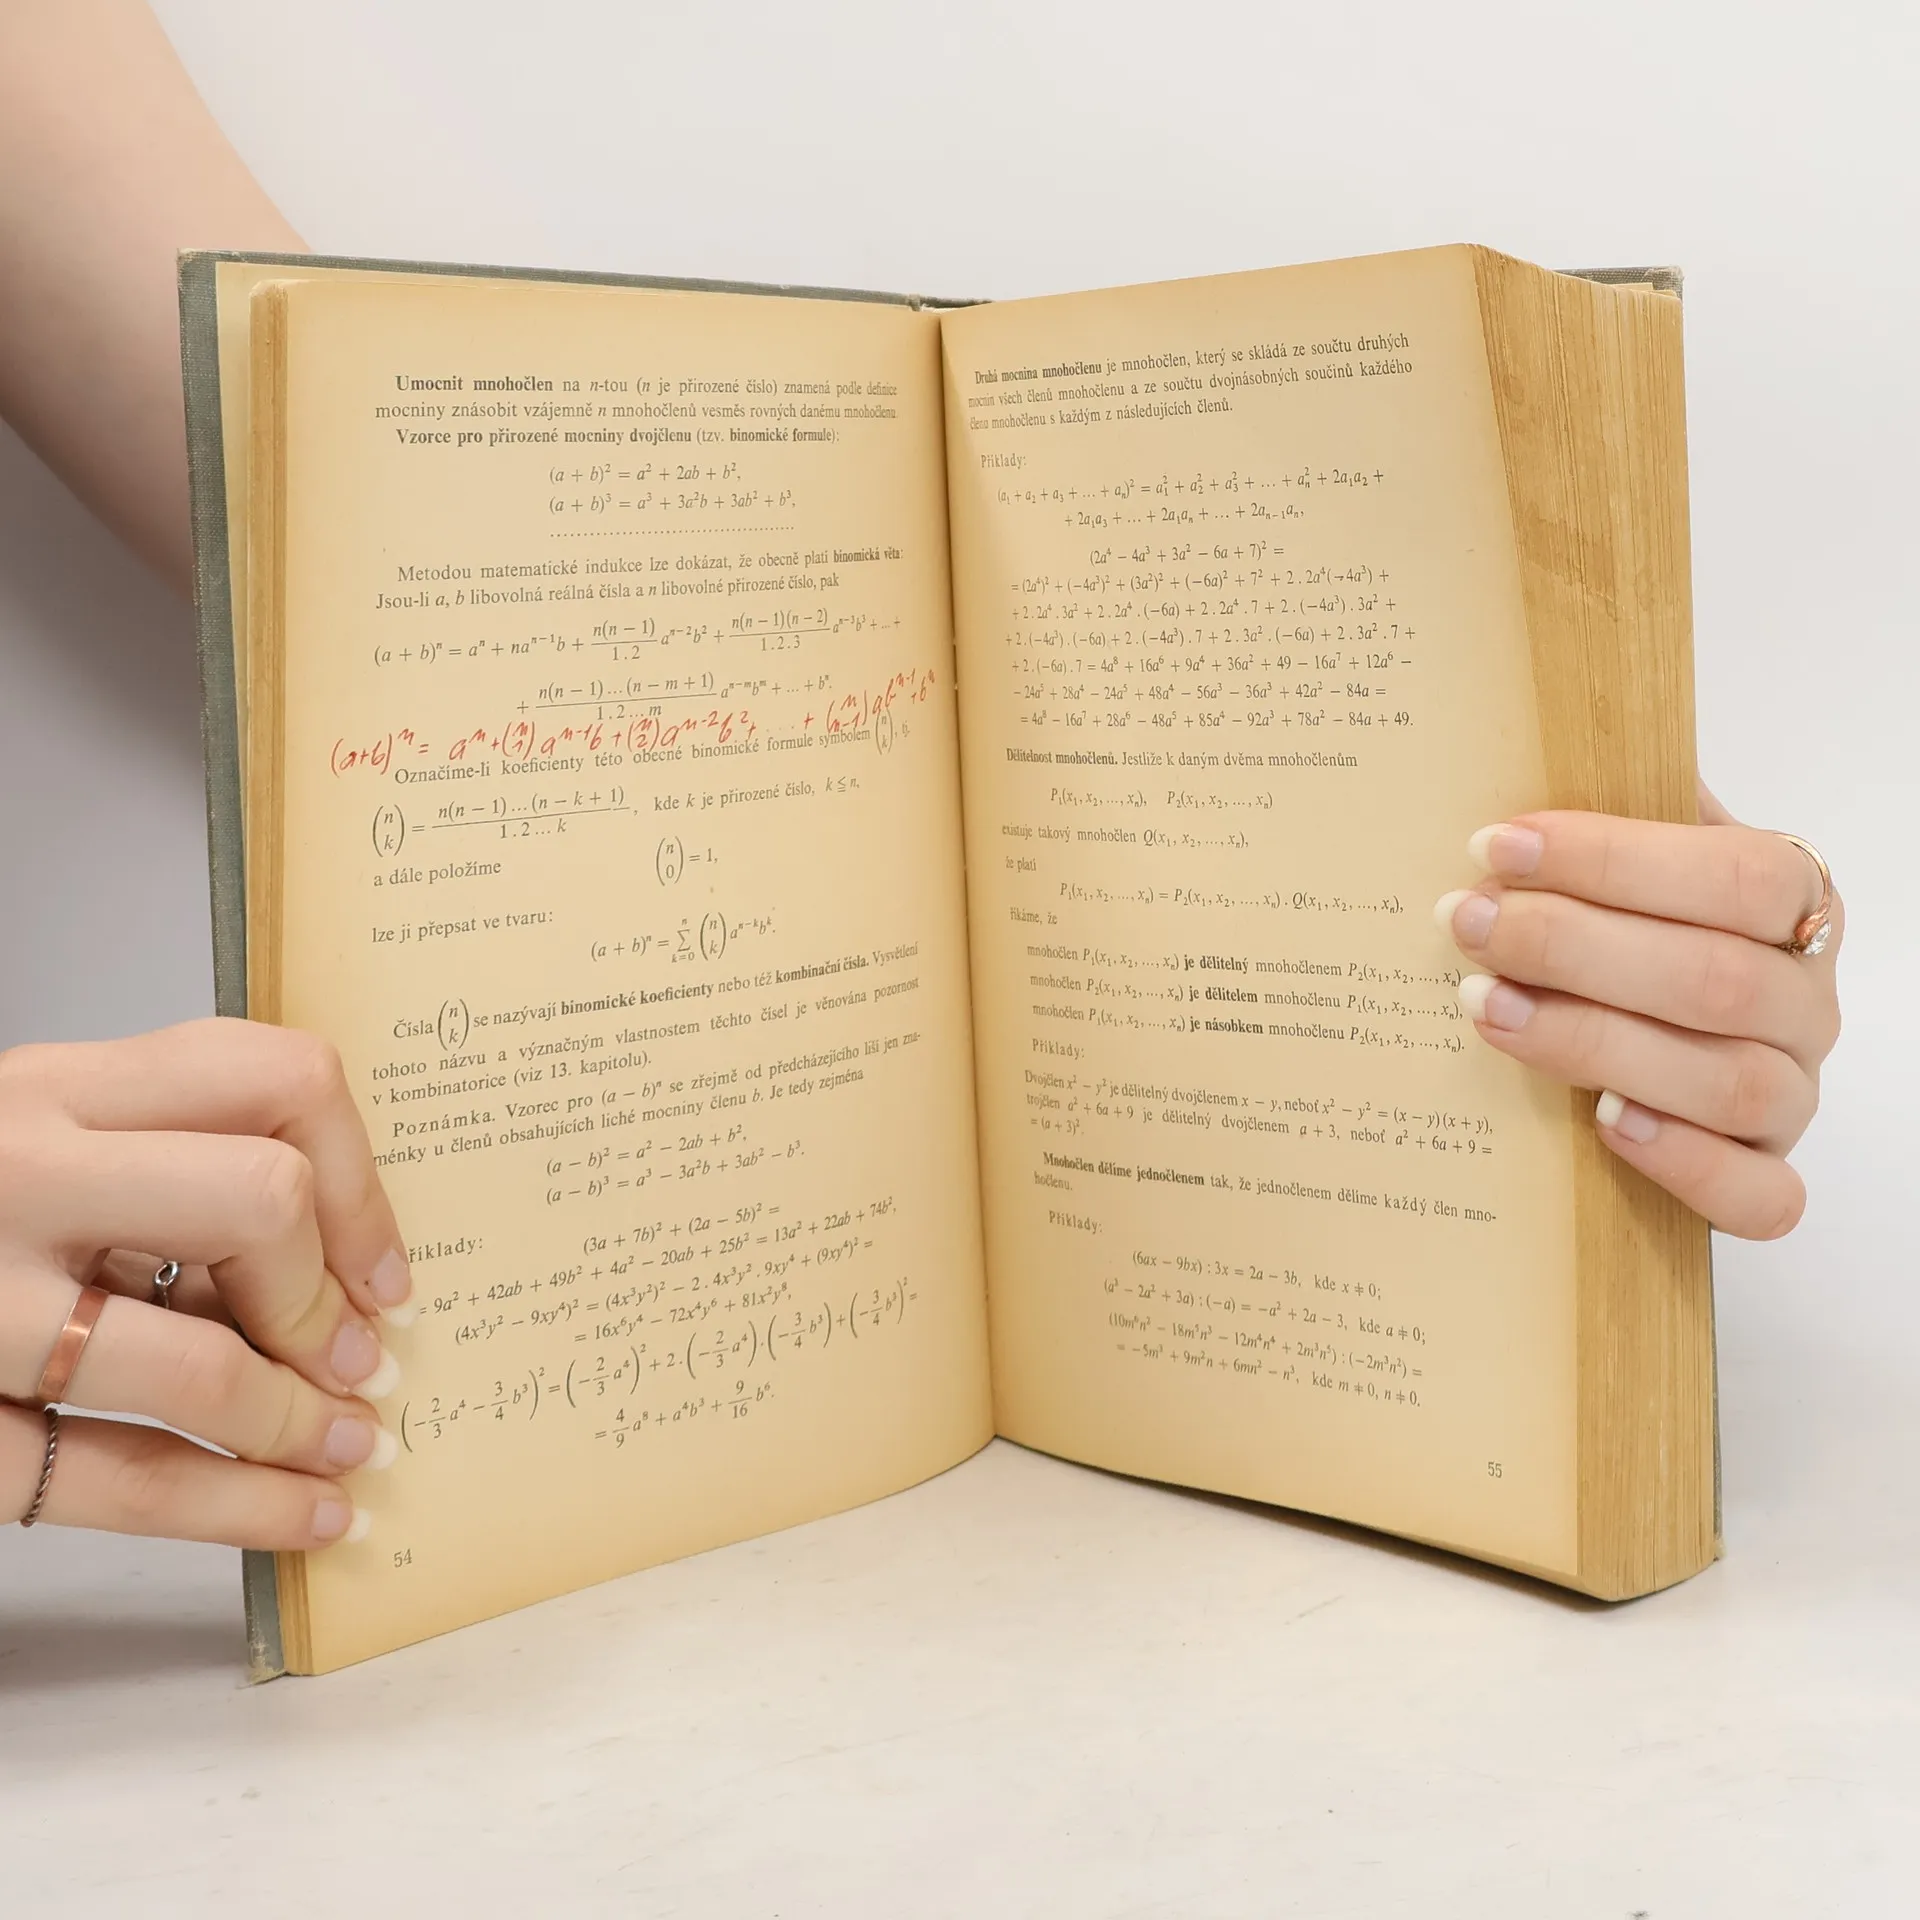 Umocnit mnohočlen na n-tou (n je přirozené číslo) znamená podle definice
mocniny znásobit vzájemně n mnohočlenů vesměs rovných danému mnohočlenu.
Vzorce pro přirozené mocniny dvojčlenu (tzv. binomické formule):
(a + b)² = a² + 2ab + b²,
(a + b)³ = a³ + 3a²b + 3ab² + b³,
........................................
Metodou matematické indukce lze dokázat, že obecně platí binomická věta:
Jsou-li a, b libovolná reálná čísla a n libovolné přirozené číslo, pak
(a + b)ⁿ = aⁿ + naⁿ⁻¹b + n(n − 1)/1.2 aⁿ⁻²b² + n(n − 1)(n − 2)/1.2.3 aⁿ⁻³b³ + ... +
+ n(n − 1)...(n − m + 1)/1.2...m aⁿ⁻ᵐbᵐ + ... + bⁿ.
(a+b)ⁿ = aⁿ + (n 1) aⁿ⁻¹b + (n 2) aⁿ⁻²b² + ... + (n n-1) abⁿ⁻¹ + bⁿ
Označíme-li koeficienty této obecné binomické formule symbolem (n k), tj.
(n k) = n(n − 1)...(n − k + 1)/1.2...k, kde k je přirozené číslo, k ≦ n,
a dále položíme (n 0) = 1,
lze ji přepsat ve tvaru:
(a + b)ⁿ = Σ k=0 n (n k) aⁿ⁻ᵏbᵏ.
Čísla (n k) se nazývají binomické koeficienty nebo též kombinační čísla. Vysvětlení
tohoto názvu a význačným vlastnostem těchto čísel je věnována pozornost
v kombinatorice (viz 13. kapitolu).
Poznámka. Vzorec pro (a − b)ⁿ se zřejmě od předcházejícího liší jen zna-
ménky u členů obsahujících liché mocniny členu b. Je tedy zejména
(a − b)² = a² − 2ab + b²,
(a − b)³ = a³ − 3a²b + 3ab² − b³.
říklady: (3a + 7b)² + (2a − 5b)² =
= 9a² + 42ab + 49b² + 4a² − 20ab + 25b² = 13a² + 22ab + 74b²,
(4x³y² − 9xy⁴)² = (4x³y²)² − 2 . 4x³y² . 9xy⁴ + (9xy⁴)² =
= 16x⁶y⁴ − 72x⁴y⁶ + 81x²y⁸,
(−2/3 a⁴ − 3/4 b³)² = (−2/3 a⁴)² + 2.(−2/3 a⁴).(−3/4 b³) + (−3/4 b³)² =
= 4/9 a⁸ + a⁴b³ + 9/16 b⁶.
54
Druhá mocnina mnohočlenu je mnohočlen, který se skládá ze součtu druhých
mocnin všech členů mnohočlenu a ze součtu dvojnásobných součinů každého
členu mnohočlenu s každým z následujících členů.
Příklady:
(a₁ + a₂ + a₃ + ... + aₙ)² = a₁² + a₂² + a₃² + ... + aₙ² + 2a₁a₂ +
+ 2a₁a₃ + ... + 2a₁aₙ + ... + 2aₙ₋₁aₙ,
(2a⁴ − 4a³ + 3a² − 6a + 7)² =
= (2a⁴)² + (−4a³)² + (3a²)² + (−6a)² + 7² + 2 . 2a⁴(−4a³) +
+ 2 . 2a⁴ . 3a² + 2 . 2a⁴ . (−6a) + 2 . 2a⁴ . 7 + 2 . (−4a³) . 3a² +
+ 2 . (−4a³) . (−6a) + 2 . (−4a³) . 7 + 2 . 3a² . (−6a) + 2 . 3a² . 7 +
+ 2 . (−6a) . 7 = 4a⁸ + 16a⁶ + 9a⁴ + 36a² + 49 − 16a⁷ + 12a⁶ −
− 24a⁵ + 28a⁴ − 24a⁵ + 48a⁴ − 56a³ − 36a³ + 42a² − 84a =
= 4a⁸ − 16a⁷ + 28a⁶ − 48a⁵ + 85a⁴ − 92a³ + 78a² − 84a + 49.
Dělitelnost mnohočlenů. Jestliže k daným dvěma mnohočlenům
P₁(x₁, x₂, ..., xₙ), P₂(x₁, x₂, ..., xₙ)
existuje takový mnohočlen Q(x₁, x₂, ..., xₙ),
že platí
P₁(x₁, x₂, ..., xₙ) = P₂(x₁, x₂, ..., xₙ) . Q(x₁, x₂, ..., xₙ),
říkáme, že
mnohočlen P₁(x₁, x₂, ..., xₙ) je dělitelný mnohočlenem P₂(x₁, x₂, ..., xₙ)
mnohočlen P₂(x₁, x₂, ..., xₙ) je dělitelem mnohočlenu P₁(x₁, x₂, ..., xₙ),
mnohočlen P₁(x₁, x₂, ..., xₙ) je násobkem mnohočlenu P₂(x₁, x₂, ..., xₙ).
Příklady:
Dvojčlen x² − y² je dělitelný dvojčlenem x − y, neboť x² − y² = (x − y)(x + y),
trojčlen a² + 6a + 9 je dělitelný dvojčlenem a + 3, neboť a² + 6a + 9 =
= (a + 3)².
Mnohočlen dělíme jednočlenem tak, že jednočlenem dělíme každý člen mno-
hočlenu.
Příklady:
(6ax − 9bx) : 3x = 2a − 3b, kde x ≠ 0;
(a³ − 2a² + 3a) : (−a) = −a² + 2a − 3, kde a ≠ 0;
(10m⁶n² − 18m⁵n³ − 12m⁴n⁴ + 2m³n⁵) : (−2m³n²) =
= −5m³ + 9m²n + 6mn² − n³, kde m ≠ 0, n ≠ 0.
55